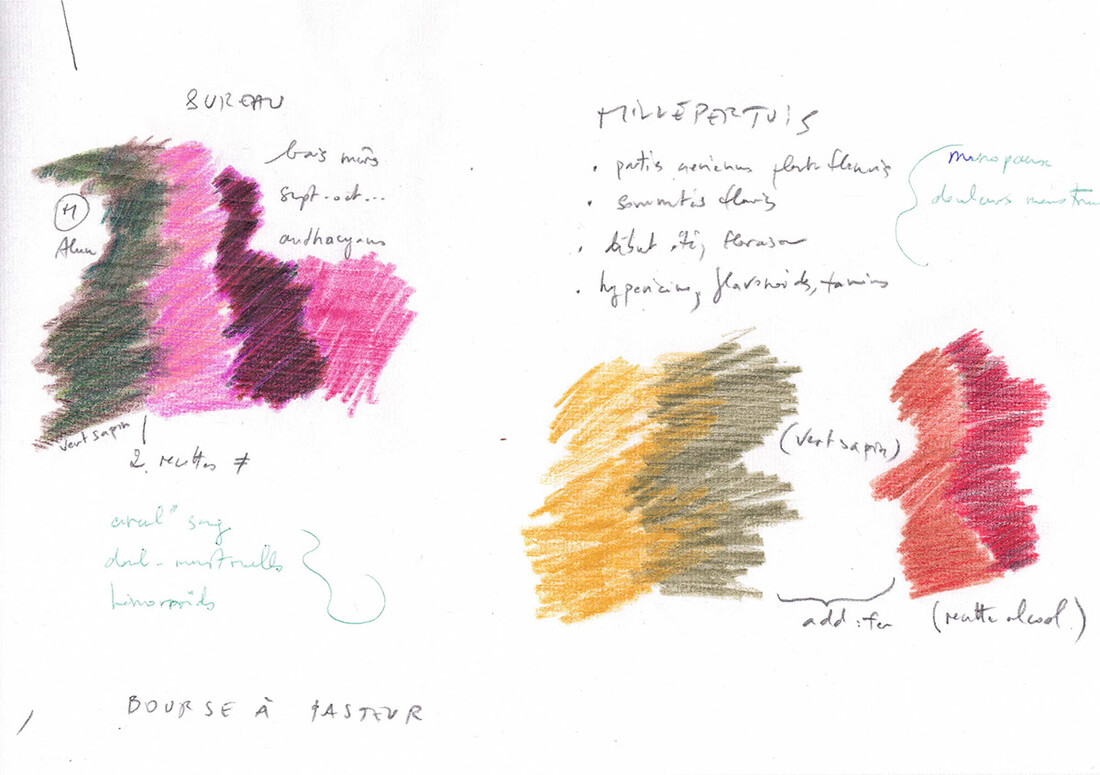 SUREAU
baies mûrs
sept.-oct...
anthocyans
M
Alun
vert sapin
2 recettes ≠
circul° sang
doul. menstruelles
hémorroïds
BOURSE À PASTEUR
MILLEPERTUIS
• partis aeriennes plante fleuris
• sommités fleuris
• début été, floraison
• hypericine, flavonoids, tanins
menopause
douleurs menstru
(vert sapin)
add : fer
(recette alcool.)